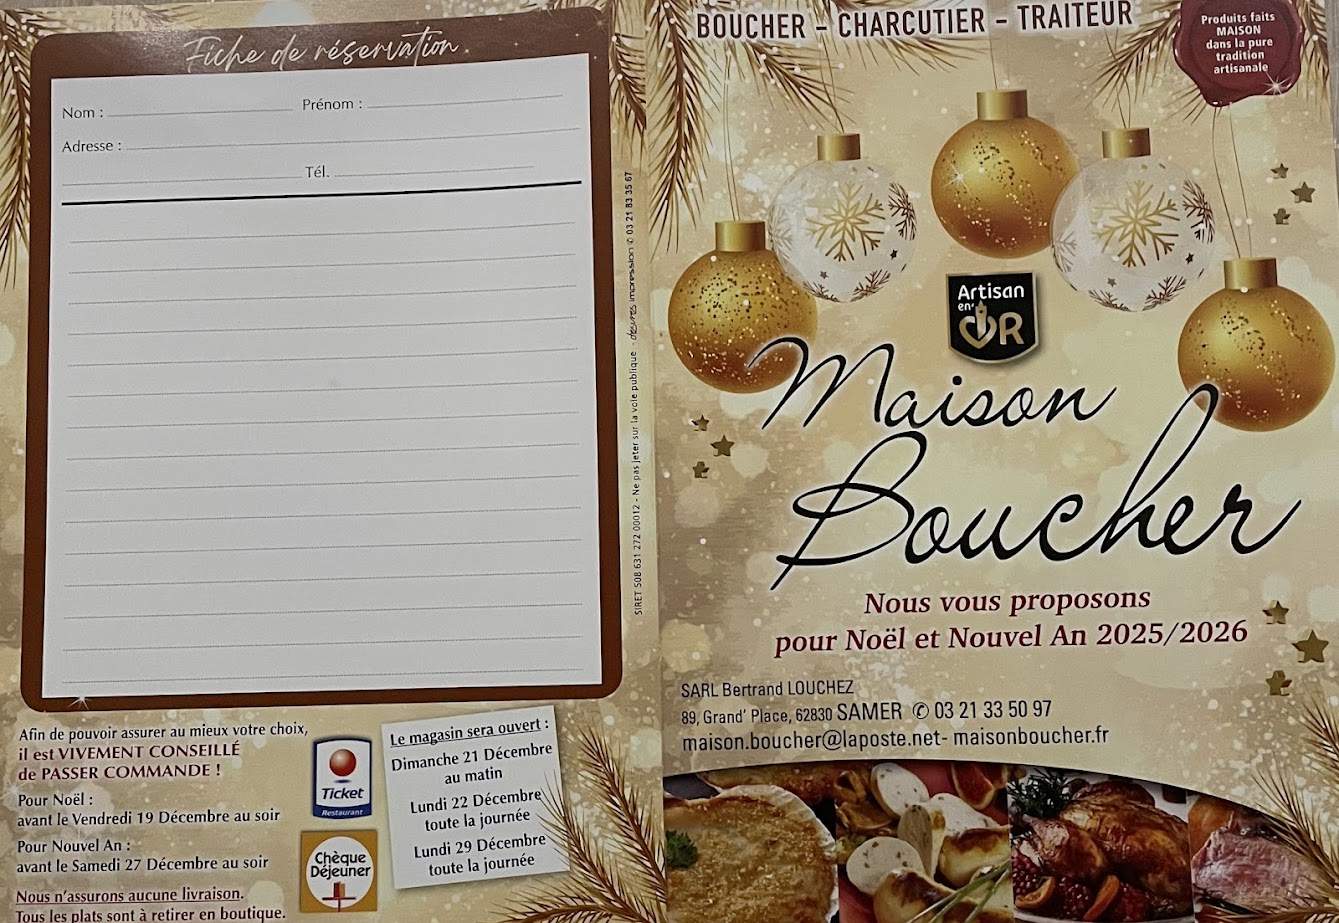 Fiche de réservation
Nom :
Prénom :
Adresse :
Tél.
SIRET 508 631 272 00012 - Ne pas jeter sur la voie publique - désires impression ✆ 03 21 83 35 67
Afin de pouvoir assurer au mieux votre choix,
il est VIVEMENT CONSEILLÉ
de PASSER COMMANDE !
Pour Noël :
avant le Vendredi 19 Décembre au soir
Pour Nouvel An :
avant le Samedi 27 Décembre au soir
Nous n'assurons aucune livraison.
Tous les plats sont à retirer en boutique.
Ticket
Restaurant
Chèque
Déjeuner
Le magasin sera ouvert :
Dimanche 21 Décembre
au matin
Lundi 22 Décembre
toute la journée
Lundi 29 Décembre
toute la journée
BOUCHER – CHARCUTIER – TRAITEUR
Produits faits
MAISON
dans la pure
tradition
artisanale
Artisan
en
OR
Maison
Boucher
Nous vous proposons
pour Noël et Nouvel An 2025/2026
SARL Bertrand LOUCHEZ
89, Grand' Place, 62830 SAMER ✆ 03 21 33 50 97
maison.boucher@laposte.net- maisonboucher.fr